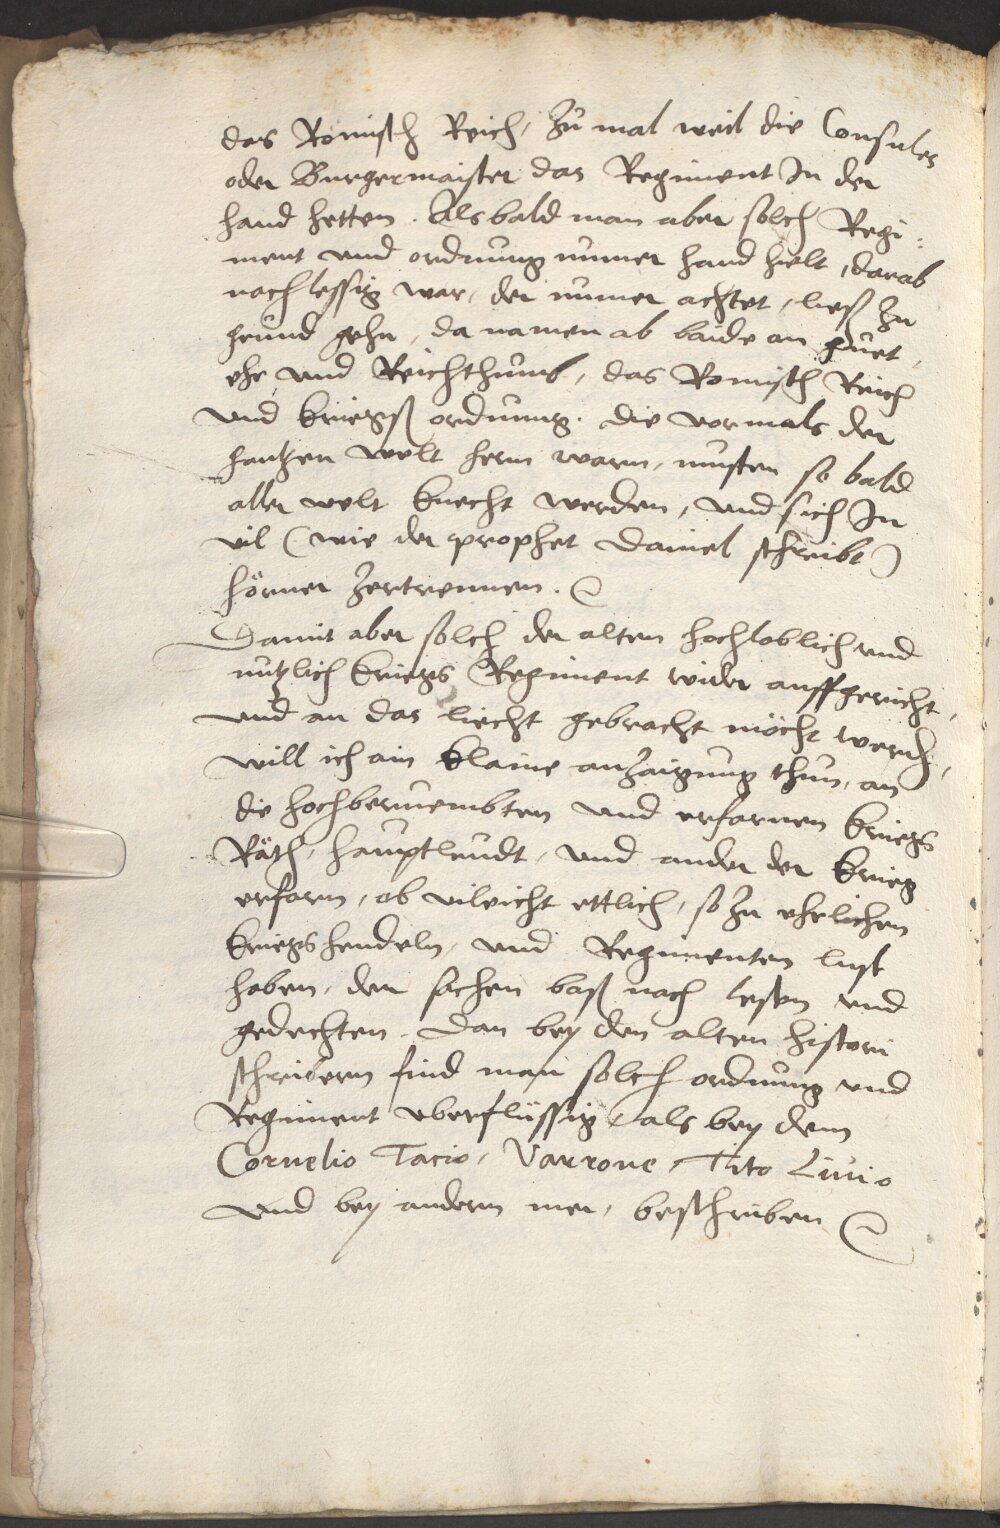 das Römisch Reich, zu mal weil die Consules
oder Burgermaister das Regiment In der
hand hetten. Als bald man aber solch Regi:
ment und ordnung nimer hand hielt, darab
nachlessig war, der nimer achtet, ließ zu
grund gehn, da namen ab baide an guet,
ehr und Reichthumb, das Romisch Reich
und kriegß ordnung. die vormals der
gantzen welt herrn warn, musten so bald
aller welt knecht werden, und sich In
vil (wie der prophet Daniel schreibt)
hörner zertrennen.
Damit aber solch der alten hochloblich und
nutzlich kriegs Regiment wider auffgericht,
und an das liecht gebracht möcht werden,
will ich ain klaine anzaigung thun, an
die hochberuembten und erfarnen kriegs
Räth, hauptleudt, und ander der krieg
erfarn, ob vileicht ettlich, so zu ehrlichen
kriegs hendeln, und Regimenten lust
haben, der sachen baß nach lesen und
gedechten. Dan bey den alten histori
schreibern find man solch ordnung und
Regiment uberflüssig, als bey dem
Cornelio Tacio, Varrone, Tito Livio
und bey andern mer, beschriben